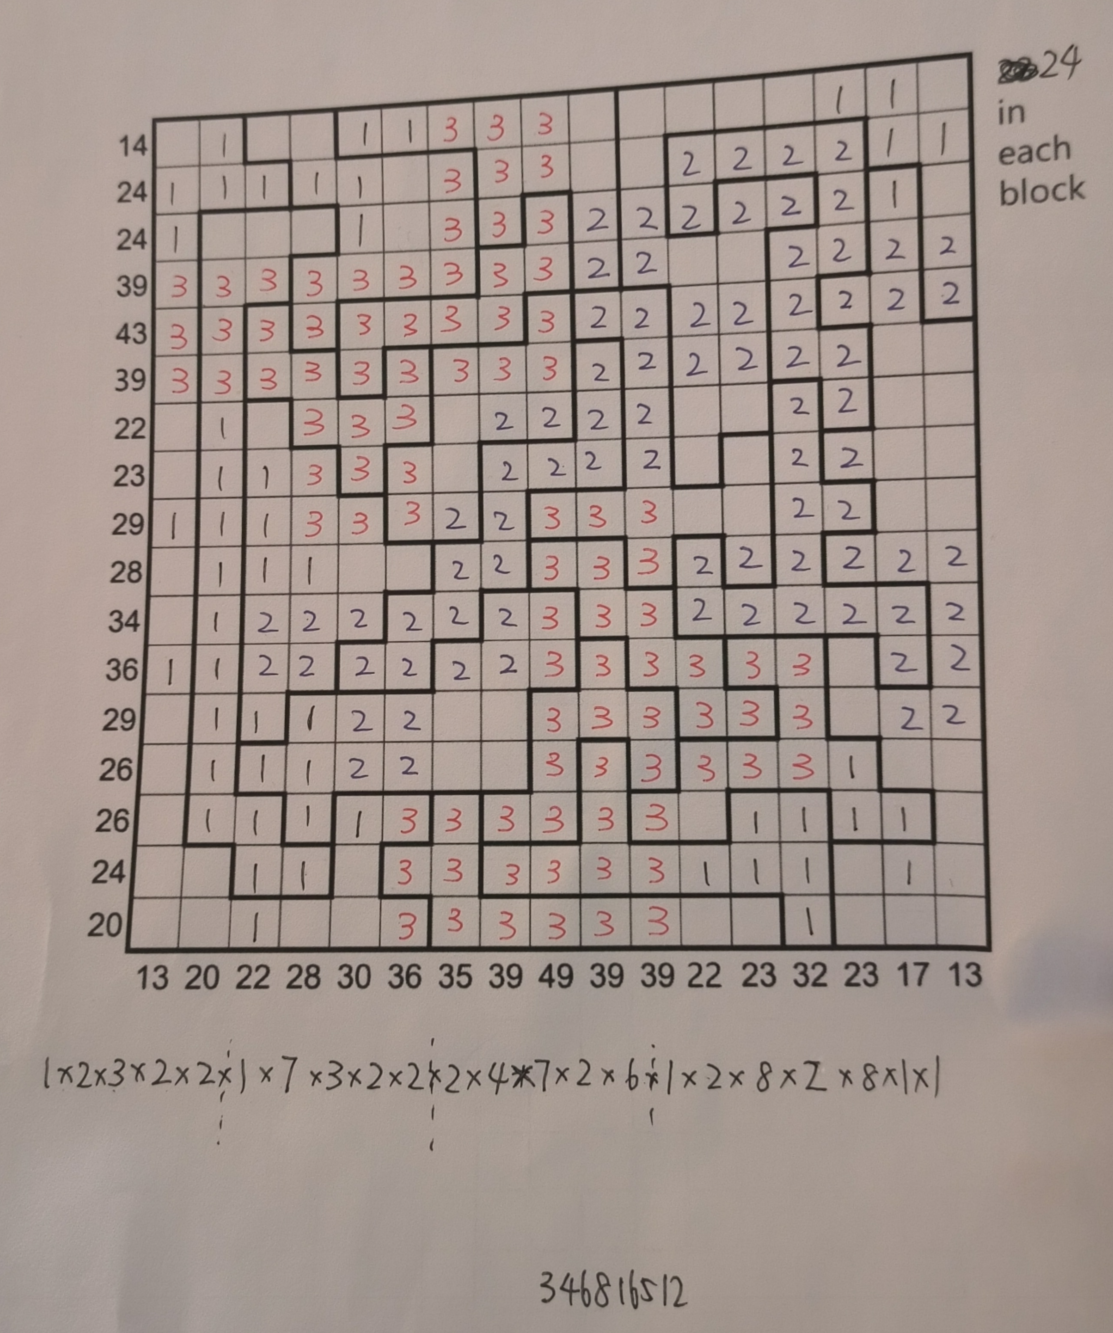 24
in
each
block
14 1 1 1 3 3 3 1 1
24 1 1 1 1 1 3 3 3 2 2 2 2 1 1
24 1 1 3 3 3 2 2 2 2 2 2 1
39 3 3 3 3 3 3 3 3 3 2 2 2 2 2 2
43 3 3 3 3 3 3 3 3 3 2 2 2 2 2 2 2 2
39 3 3 3 3 3 3 3 3 3 2 2 2 2 2 2
22 1 3 3 3 2 2 2 2 2 2
23 1 1 3 3 3 2 2 2 2 2 2
29 1 1 1 3 3 3 2 2 3 3 3 2 2
28 1 1 1 2 2 3 3 3 2 2 2 2 2 2
34 1 2 2 2 2 2 2 3 3 3 2 2 2 2 2 2
36 1 1 2 2 2 2 2 2 3 3 3 3 3 3 2 2
29 1 1 1 2 2 3 3 3 3 3 3 2 2
26 1 1 1 2 2 3 3 3 3 3 3 1
26 1 1 1 1 3 3 3 3 3 3 1 1 1 1
24 1 1 3 3 3 3 3 3 1 1 1 1
20 1 3 3 3 3 3 3 1
13 20 22 28 30 36 35 39 49 39 39 22 23 32 23 17 13
1×2×3×2×2×1×7×3×2×2×2×4×7×2×6×1×2×8×2×8×1×1
346816512